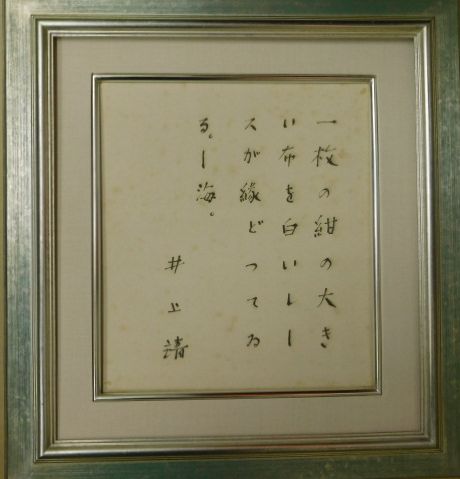 一枚の紺の大き
い布を白いレー
スが縁どつてゐ
る。ー海。
井上靖